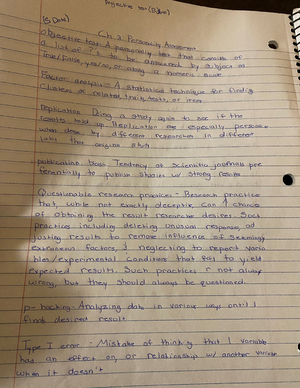 Ch. 3 Personality Assessment
objective test: A personality test that consists of
a lot of ?s to be answered by subject as
True/False, yes/no, or along a numeric scale
Factor analysis: A statistical technique for finding
clusters of related traits, tests, or items
Replication: Doing a study again to see if the
results hold up. Replication are especially persuasive
when done by different researchers in different
labs than original study
publication bias: Tendency of scientific journals pre
ferentially to publish studies w/ strong results
Questionable research practices: Research practice
that, while not exactly deceptive, can ↑ chance
of obtaining the result researcher desires. Such
practices including deleting unusual responses, ad
justing results to remove influence of seemingly
extraneous factors, & neglecting to report varia
bles/experimental conditions that fail to yield
expected results. Such practices r not always
wrong, but they should always be questioned.
p-hacking: Analyzing data in various ways until 1
finds desired result
Type I error: Mistake of thinking that 1 variable
has an effect on, or relationship w/ another variable
when it doesn't